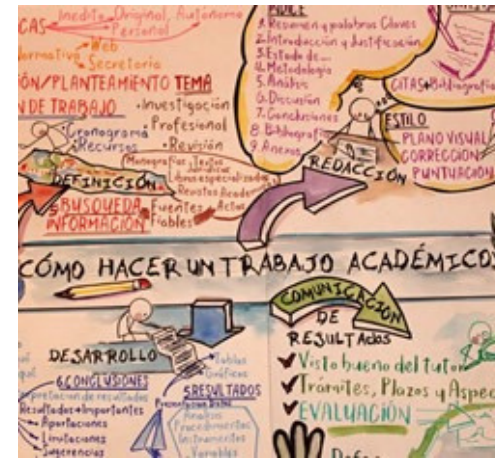 CAS
Inedito, Original, Autónomo
Personal
Normativa
Web
Secretaria
ÓN/PLANTEAMIENTO TEMA
N DE TRABAJO
•Investigación
•Profesional
•Revisión
Cronograma
Recursos
DEFINICIÓN
Monografías
Textos
Libros especializados
Revistas Acade
Actas
5 BUSQUEDA
INFORMACIÓN
Fuentes
Fiables
ÍNDICE
1. Resumen y palabras Claves
2. Introducción y Justificación
3. Estado de...
4. Metodología
5. Análisis
6. Discusión
7. Conclusiones
8. Bibliografí
9. Anexos
REDACCIÓN
CITAS+Bibliografía
ESTILO
PLANO VISUAL
CORRECCIÓN
PUNTUACIÓN
CÓMO HACER UN TRABAJO ACADÉMICO
DESARROLLO
6.CONCLUSIONES
Interpretación de resultados
Resultados+Importantes
Aportaciones
Limitaciones
Sugerencias
Tablas
Gráficos
5.RESULTADOS
Presentación Datos
Análisis
Procedimientos
Instrumentos
Variables
COMUNICACIÓN
DE
RESULTAdos
Visto bueno del tutor
Trámites, Plazos y Aspec
EVALUACIÓN
Defe